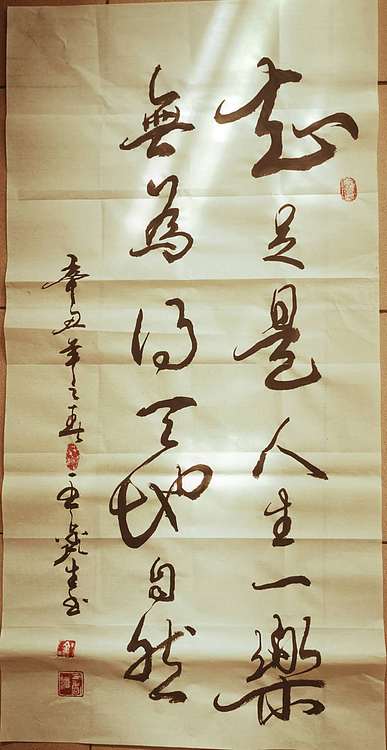 知足是人生一樂
無為得天地自然
辛丑年之春 王生书